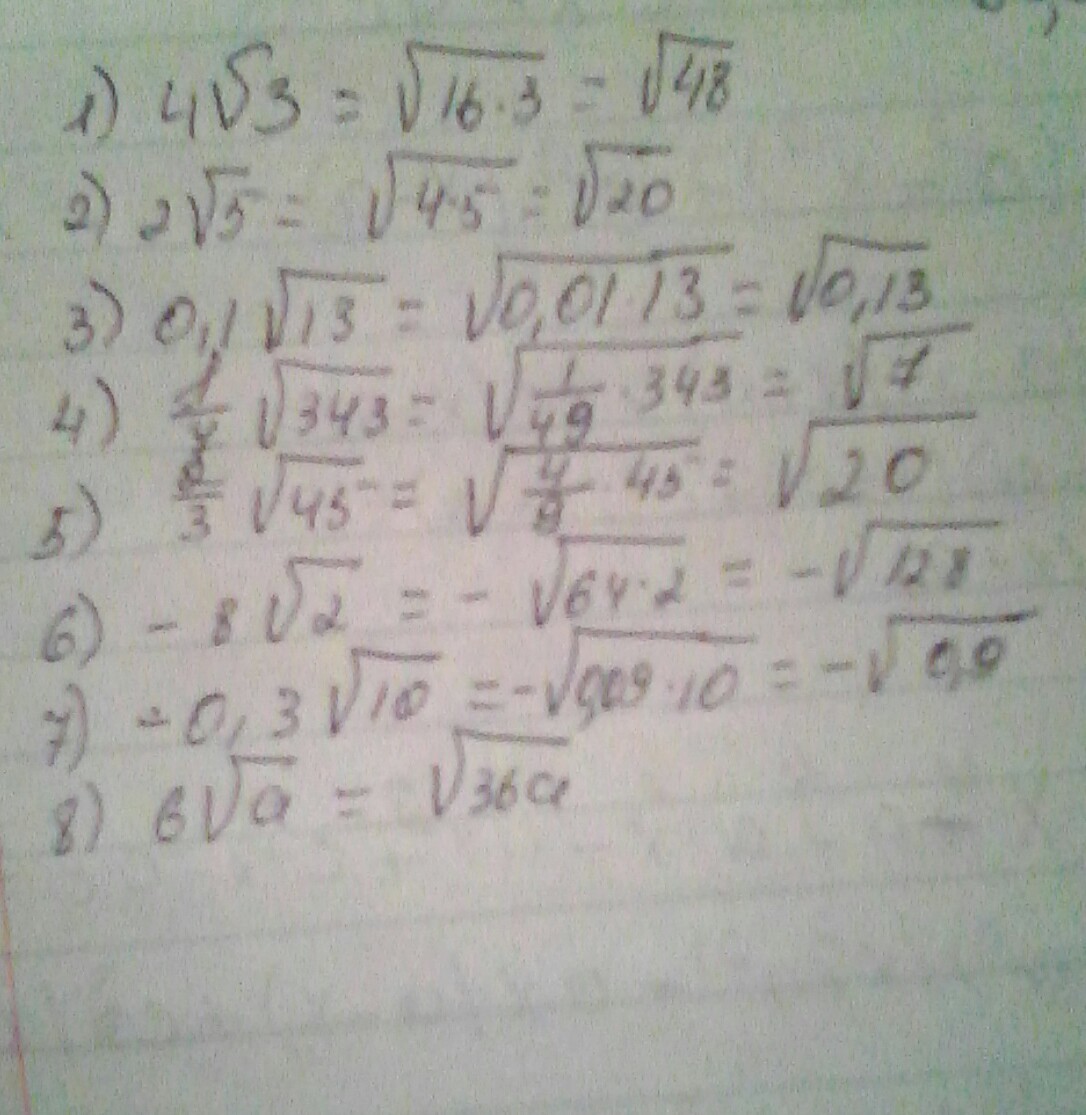 1) 4√3 = √16·3 = √48
2) 2√5 = √4·5 = √20
3) 0,1√13 = √0,01·13 = √0,13
4) 1/7 √343 = √1/49·343 = √7
5) 2/3 √45 = √4/9·45 = √20
6) -8√2 = -√64·2 = -√128
7) -0,3√10 = -√0,09·10 = -√0,9
8) 6√a = √36a